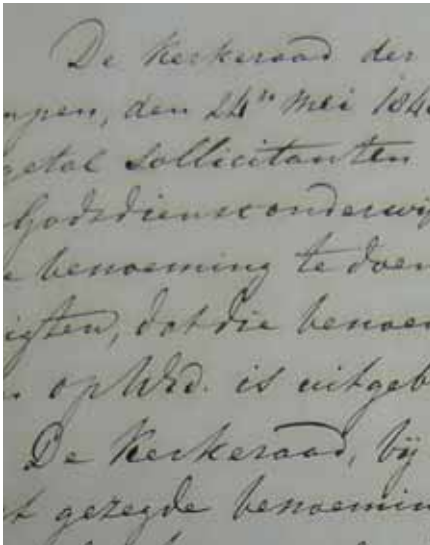 De Kerkeraad der
mpen, den 24n Mei 184
getal sollicitanten
Godsdienstonderwij
e benoeming te doen
igten, dat die benoem
op WEd. is uitgeb
De Kerkeraad, bij
t gezegde benoemin